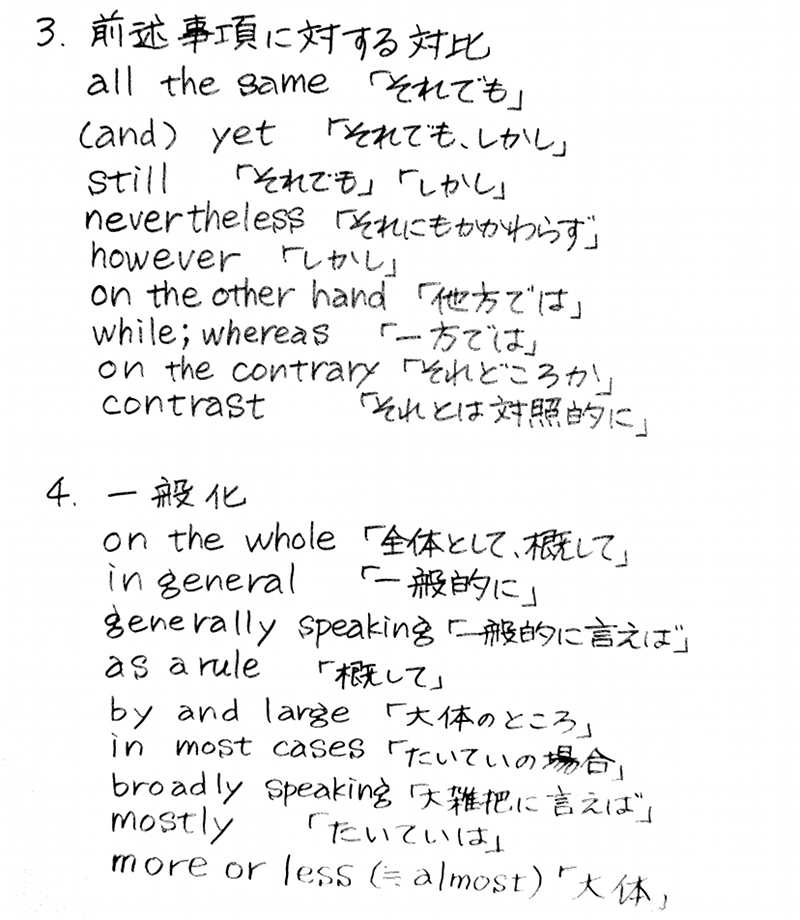 3. 前述事項に対する対比
all the same 「それでも」
(and) yet 「それでも、しかし」
still 「それでも」「しかし」
nevertheless 「それにもかかわらず」
however 「しかし」
on the other hand 「他方では」
while; whereas 「一方では」
on the contrary 「それどころか」
contrast 「それとは対照的に」
4. 一般化
on the whole 「全体として、概して」
in general 「一般的に」
generally speaking 「一般的に言えば」
as a rule 「概して」
by and large 「大体のところ」
in most cases 「たいていの場合」
broadly speaking 「大雑把に言えば」
mostly 「たいていは」
more or less (≒ almost) 「大体」